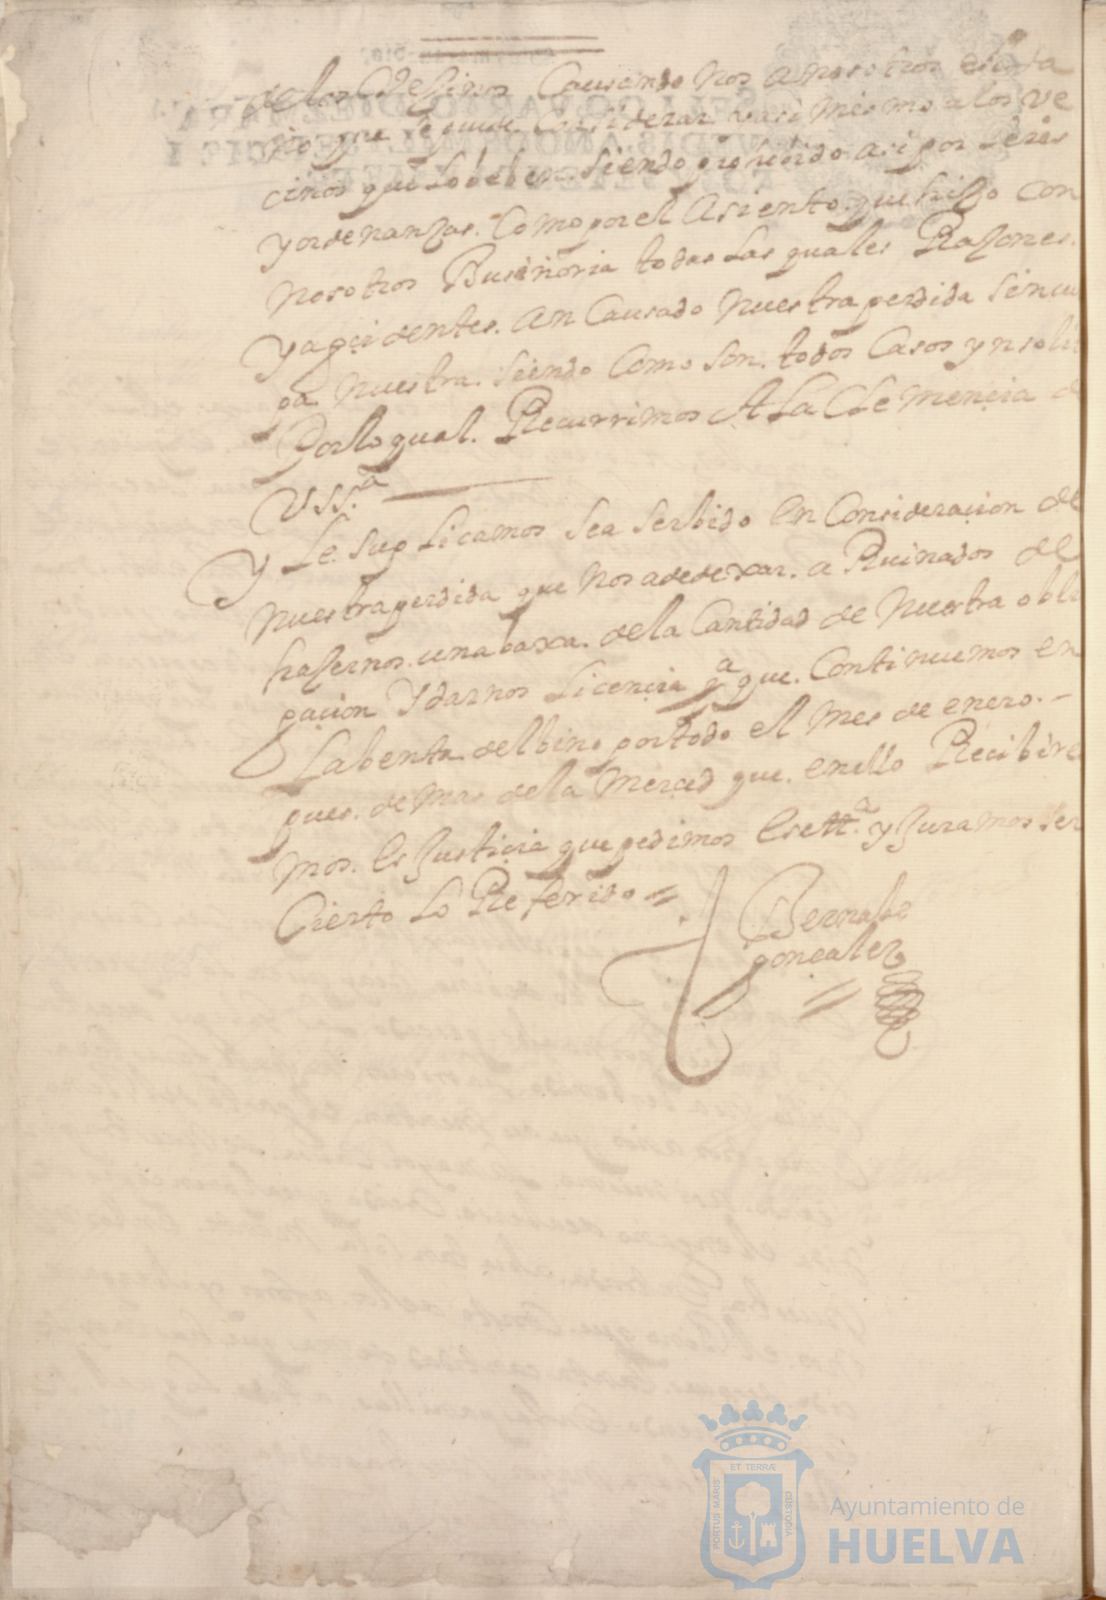 de los Causando nos a nosotros
que se puede considerar y asi mismo a los ve
cinos que lo beben siendo proibido asi por
y ordenanzas. Como por el Asiento que hizo con
nosotros Buseñoria todas las quales Razones.
y açidentes. an Causado nuestra perdida sin cul
pa nuestra. siendo Como son. todos Casos ynsoli
Por lo qual. Recurrimos A La Clemencia d
VSS.ª
Y Le suplicamos sea serbido en Consideraçion de
nuestra perdida que nos a de dexar. a Ruinados de
hazernos. una baxa. de la Cantidad de nuestra obli
gaçion Y darnos Liçençia pª que. Continuemos en
La benta del bino por todo el mes de enero. -
pues. de mas de la Merçed que. en ello Recibire
mos. Es Justiçia que pedimos Ettª. y Juramos ser
Cierto Lo Referido =
Bernabe
gonçalez
PORTUS MARIS
ET TERRÆ
CUSTODIA
Ayuntamiento de
HUELVA